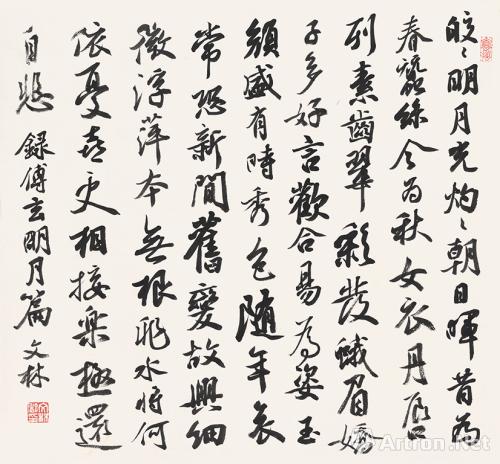 皎〻明月光灼〻朝日暉昔為
春蠶絲今為秋女衣丹唇
列素齒翠彩發蛾眉嬌
子多好言歡合易為姿玉
顏盛有時秀色随年衰
常恐新間舊變故興細
微浮萍本無根非水將何
依憂喜更相接樂極還
自悲 錄傅玄明月篇 文林
Artron.Net